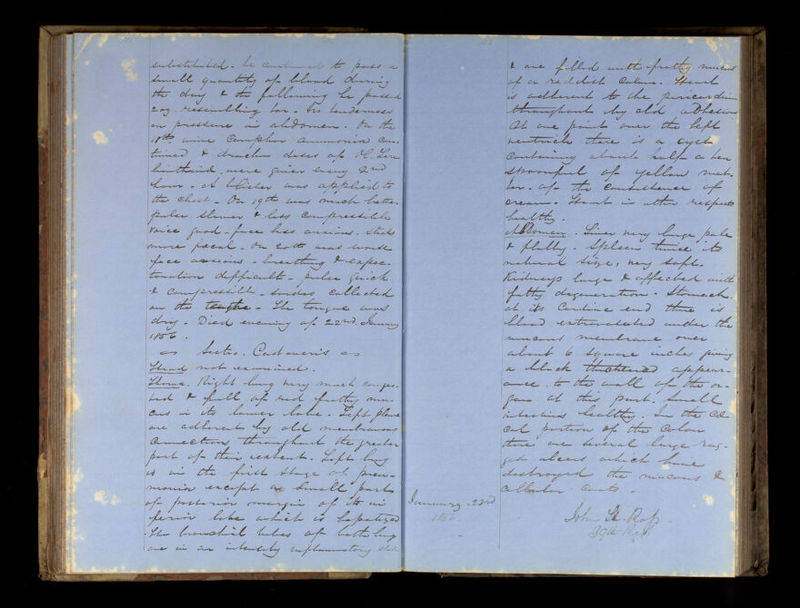 substituted. he continued to pass a
small quantity of blood during
the day & the following he passed
2 oz. resembling tar. No tenderness
on pressure in abdomen. On the
18th wine camphor ammonia con-
tinued & drachm doses of Ol. Tere
binthinae were given every 2nd
hour. A blister was applied to
the chest. On 19th was much better
pulse slower & less compressible
voice good - face less anxious. stools
more fecal. On 20th was worse
face anxious - breathing & expec-
toration difficult. pulse quick
& compressible. sordes collected
on the teeth. The tongue was
dry. Died evening of 22nd January
1856.
Sectio Cadaveris
Head not examined.
Thorax. Right lung very much conges-
ted & full of red frothy mu-
cus in its lower lobe. Left pleura
are adherent by old membranous
connections throughout the greater
part of their extent. Left lung
is in the first stage of pneu-
monia except a small part
of posterior margin of its in
ferior lobe which is hepatized
The bronchial tubes of both lungs
are in an intensely inflammatory state
& are filled with frothy mucus
of a reddish colour. Heart
is adherent to the pericardium
throughout by old adhesions
At one point over the left
ventricle there is a cyst
containing about half a tea
spoonful of yellow mat-
ter. of the consistence of
cream. Heart in other respects
healthy.
Abdomen. Liver very large pale
& flabby. Spleen twice its
natural size, very soft.
Kidneys large & affected with
fatty degeneration. Stomach.
at its cardiac end there is
blood extravasated under the
mucous membrane over
about 6 square inches giving
a black thickened appear-
ance to the wall of the or-
gan at this part. Small
intestines healthy. In the cae
cal portion of the colon
there are several large rag-
ged ulcers which have
destroyed the mucous &
cellular coats.
January 22nd
1856
John
39th Regt.